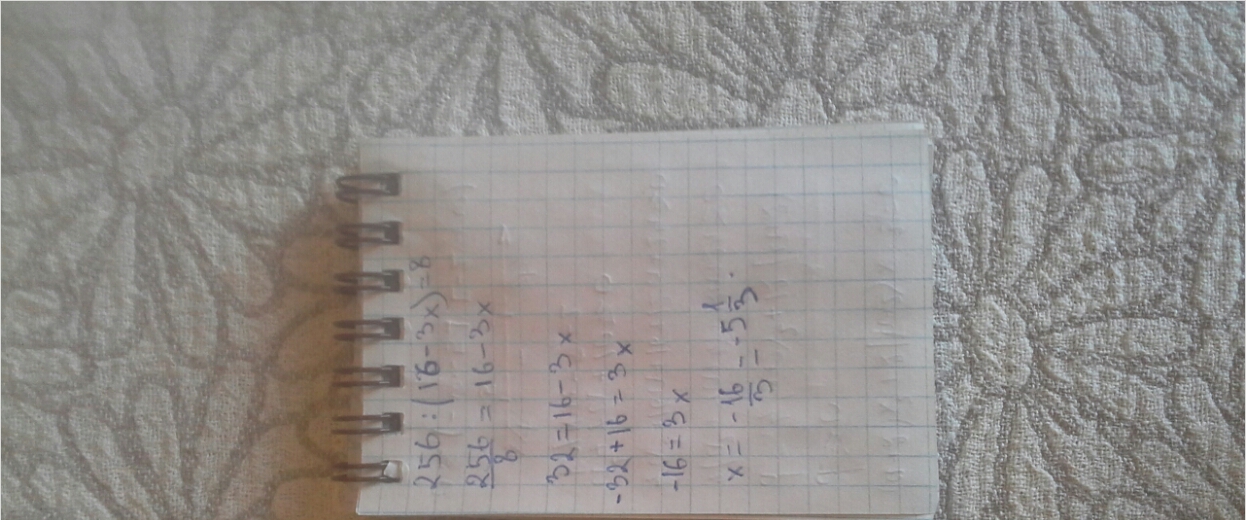 256:(16-3x)=8
256/8 = 16-3x
32=16-3x
-32+16=3x
-16=3x
x = -16/3 = -5 1/3.